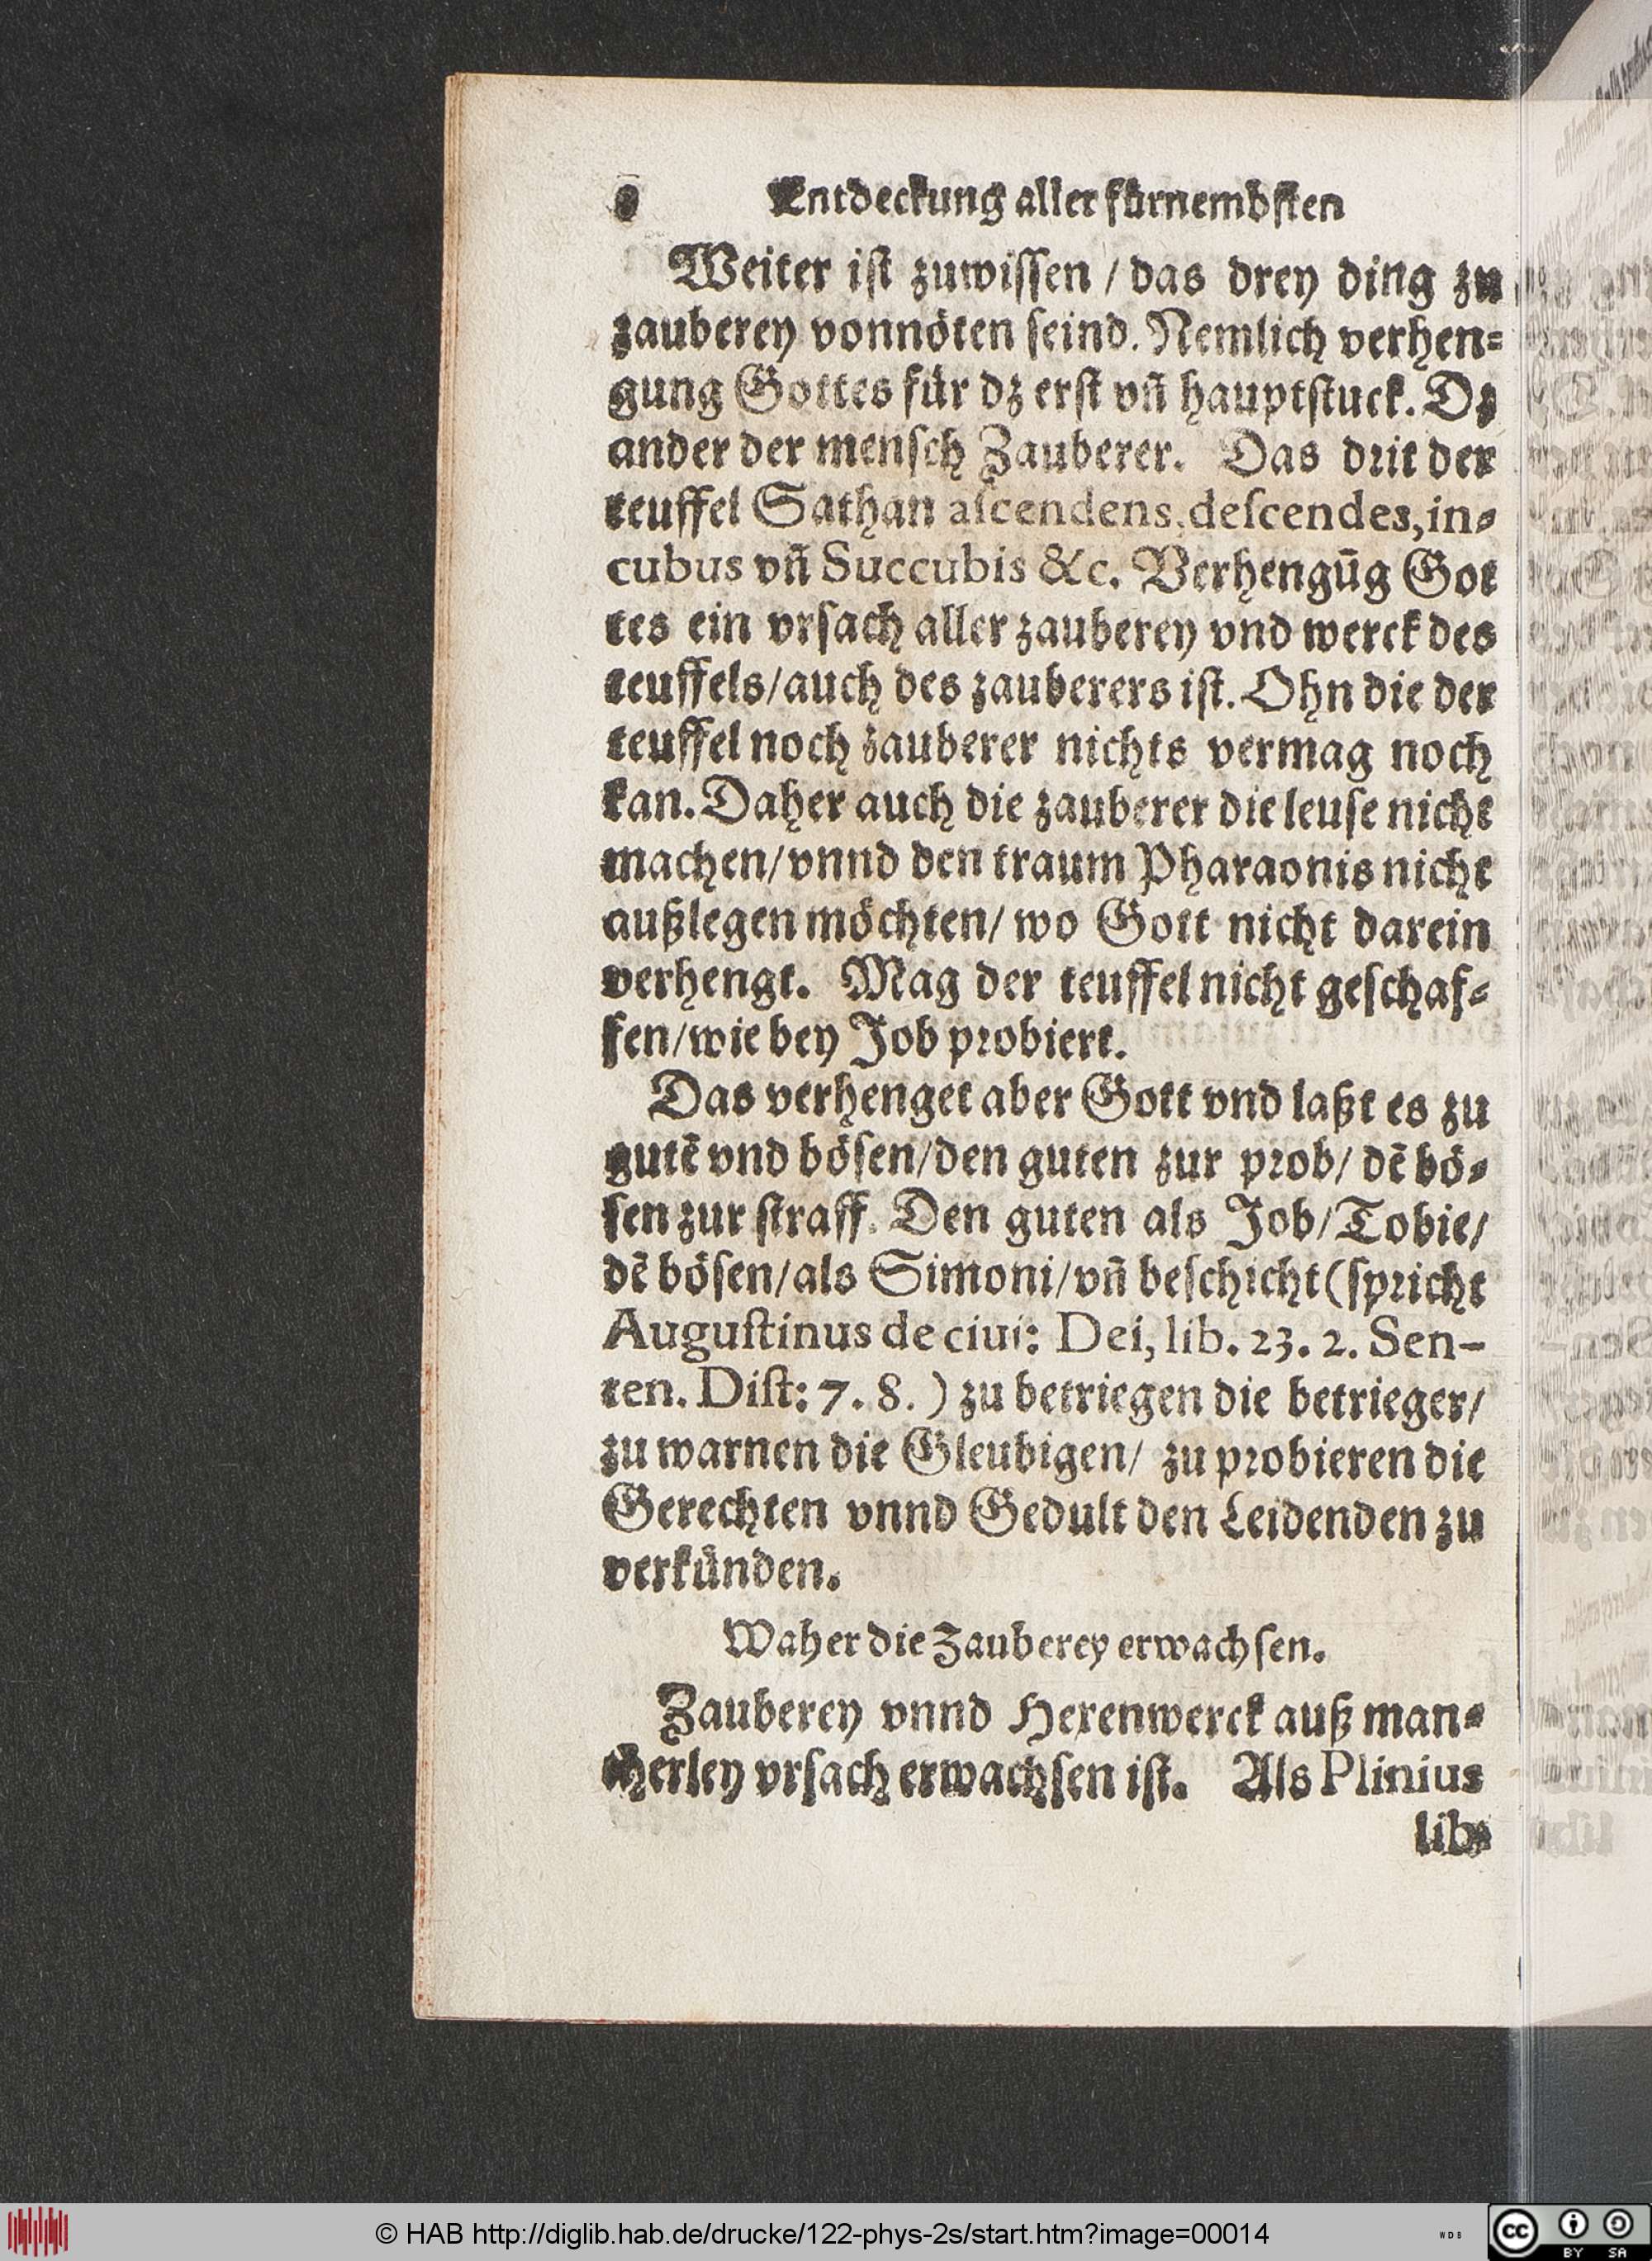 8 Entdeckung aller fürnembsten
Weiter ist zuwissen / das drey ding zu
zauberey vonnöten seind. Nemlich verhen⸗
gung Gottes für dz erst vñ hauptstuck. Dz
ander der mensch Zauberer. Das drit der
teuffel Sathan ascendens, descendes, in⸗
cubus vñ Succubis &c. Verhengūg Got
tes ein vrsach aller zauberey vnd werck des
teuffels/auch des zauberers ist. Ohn die der
teuffel noch zauberer nichts vermag noch
kan. Daher auch die zauberer die leuse nicht
machen/vnnd den traum Pharaonis nicht
außlegen möchten/ wo Gott nicht darein
verhengt. Mag der teuffel nicht geschaf⸗
fen/wie bey Job probiert.
Das verhenget aber Gott vnd laßt es zu
gutē vnd bösen/den guten zur prob/ dē bö⸗
sen zur straff. Den guten als Job/Tobie/
dē bösen/als Simoni/vñ beschicht (spricht
Augustinus de ciui: Dei, lib. 23. 2. Sen-
ten. Dist: 7. 8. ) zu betriegen die betrieger/
zu warnen die Gleubigen/ zu probieren die
Gerechten vnnd Gedult den Leidenden zu
verkünden.
Waher die Zauberey erwachsen.
Zauberey vnnd Hexenwerck auß man⸗
cherley vrsach erwachsen ist. Als Plinius
lib.
© HAB http://diglib.hab.de/drucke/122-phys-2s/start.htm?image=00014
WDB
cc
BY SA